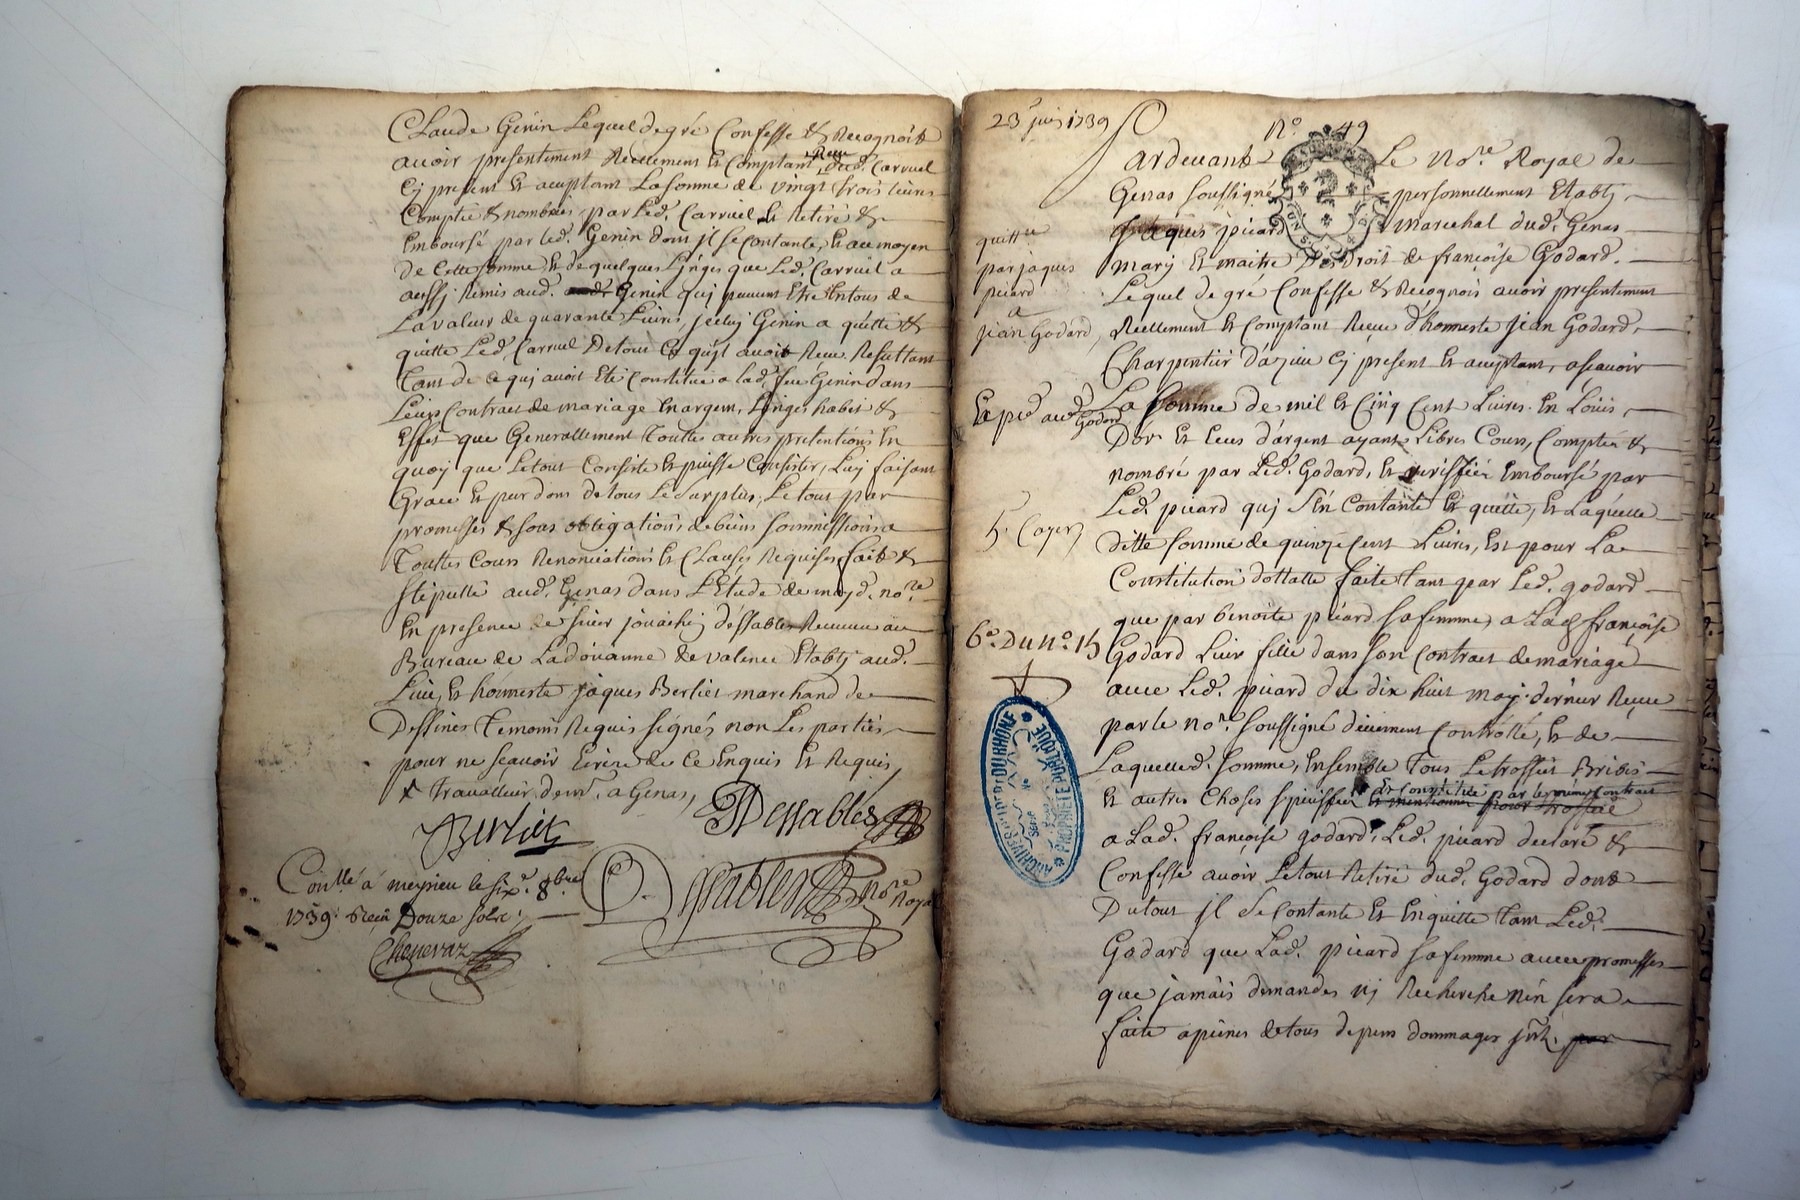 Claude Genin Lequel de gré Confesse & Recognoit
avoir presentement Reellement et Comptant Receu dud. Carruel
Cy present et aceptant La somme de vingt trois livres
Comptée & nombrées par Led. Carruel et Retiré &
Emboursé par led. Genin dont jl se contante, Et au moyen
de Cette somme et de quelques Linges que Led. Carruel a
aussj Remis aud. Genin quj peuvent Etre Entous de
La valeur de quarante Livres, jceluj Genin a quitté &
quitte Led. Carruel De tout Ce qu'jl avoit Receu Resultant
tant de ce quj avoit Eté Constitué a lad. feu Genin dans
Leurs Contract de mariage En argent, Linges habits &
Effets que Generallement touttes autres pretentions En
quoy que Le tout Consiste Et puisse Consister, Luj faisant
Grace Et pur don de tous Le Surplus, Le tout par
promesses & sous obligations de biens soumissions a
Touttes Cours Renonciations Et Clauses Requises fait &
stipullé aud. Genas dans L'Etude de moyd. nore.
En presence de sieur joüachinj dessables Receveur au
Bureau de La doüanne de valence Etablj aud.
Lieu, Et honneste jaques Berliet marchand de
Dessines Temoins Requis signés non Les parties
pour ne sçavoir Ecrire de Ce Enquis Et Requis,
x Travailleur demt. a Genas,
Berliet JDessables
DDessables Nore Royal
Conllé a meyzieu le six e 8bre
1739. Reçu Douze sols.
Chenevaz
23 juin 1739
No. 49
Pardevant Le Nore. Royal de
Genas soussigné personnellement Etablj
Jaques picard Marechal dud. Genas
quittce
par jaques
picard
a
jean Godard,
marj Et maitre Des Droit de françoise Godard.
Lequel de gré Confesse & Recognoit avoir presentement
Reellement Et Comptant Receu d'honneste jean Godard,
Charpentier d'azieu Cj present Et aceptant, asçavoir
Expié aud. Godard
La somme de mil Et Cinq Cent Livres. En Loüis
D'or Et Ecus d'argent ayant Libres Cours, Comptée &
nombré par Led. Godard, Et veriffiée Emboursé par
Led. picard quj s'en Contante Et quitte, Et Laquelle
5e. Cayer
ditte somme de quinze Cent Livres, Est pour La
Constitution dottalle faite tant par Led. godard
que par benoite picard sa femme, a Lad. françoise
6e. Du No. 15
Godard Leur fille dans son Contract de mariage
avec Led. picard du dix huit may dernier Receu
par le nore. soussigné düement Controllé, Et de
Laquelled. somme, Ensemble tous Le trossel Brebis
Et autres Choses spéciffiée Et Constitué par le meme Contract
a Lad. françoise godard, Led. picard declare &
Confesse avoir Le tout Retiré dud. Godard dont
Du tout jl Se Contante Et En quitte tant Led.
Godard que Lad. picard sa femme avec promesses
que jamais demandes nj Recherche n'en sera
faite a peines de tous depens dommages jnts.
ARCHIVES DU DEPT DU RHÔNE
PROPRIÉTÉ PUBLIQUE